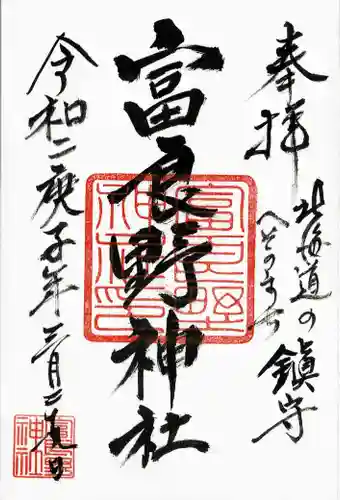 奉拝
北海道の
へそのまち
鎮守
富良野神社
富良野神社
令和二庚子年三月二
富良野神社